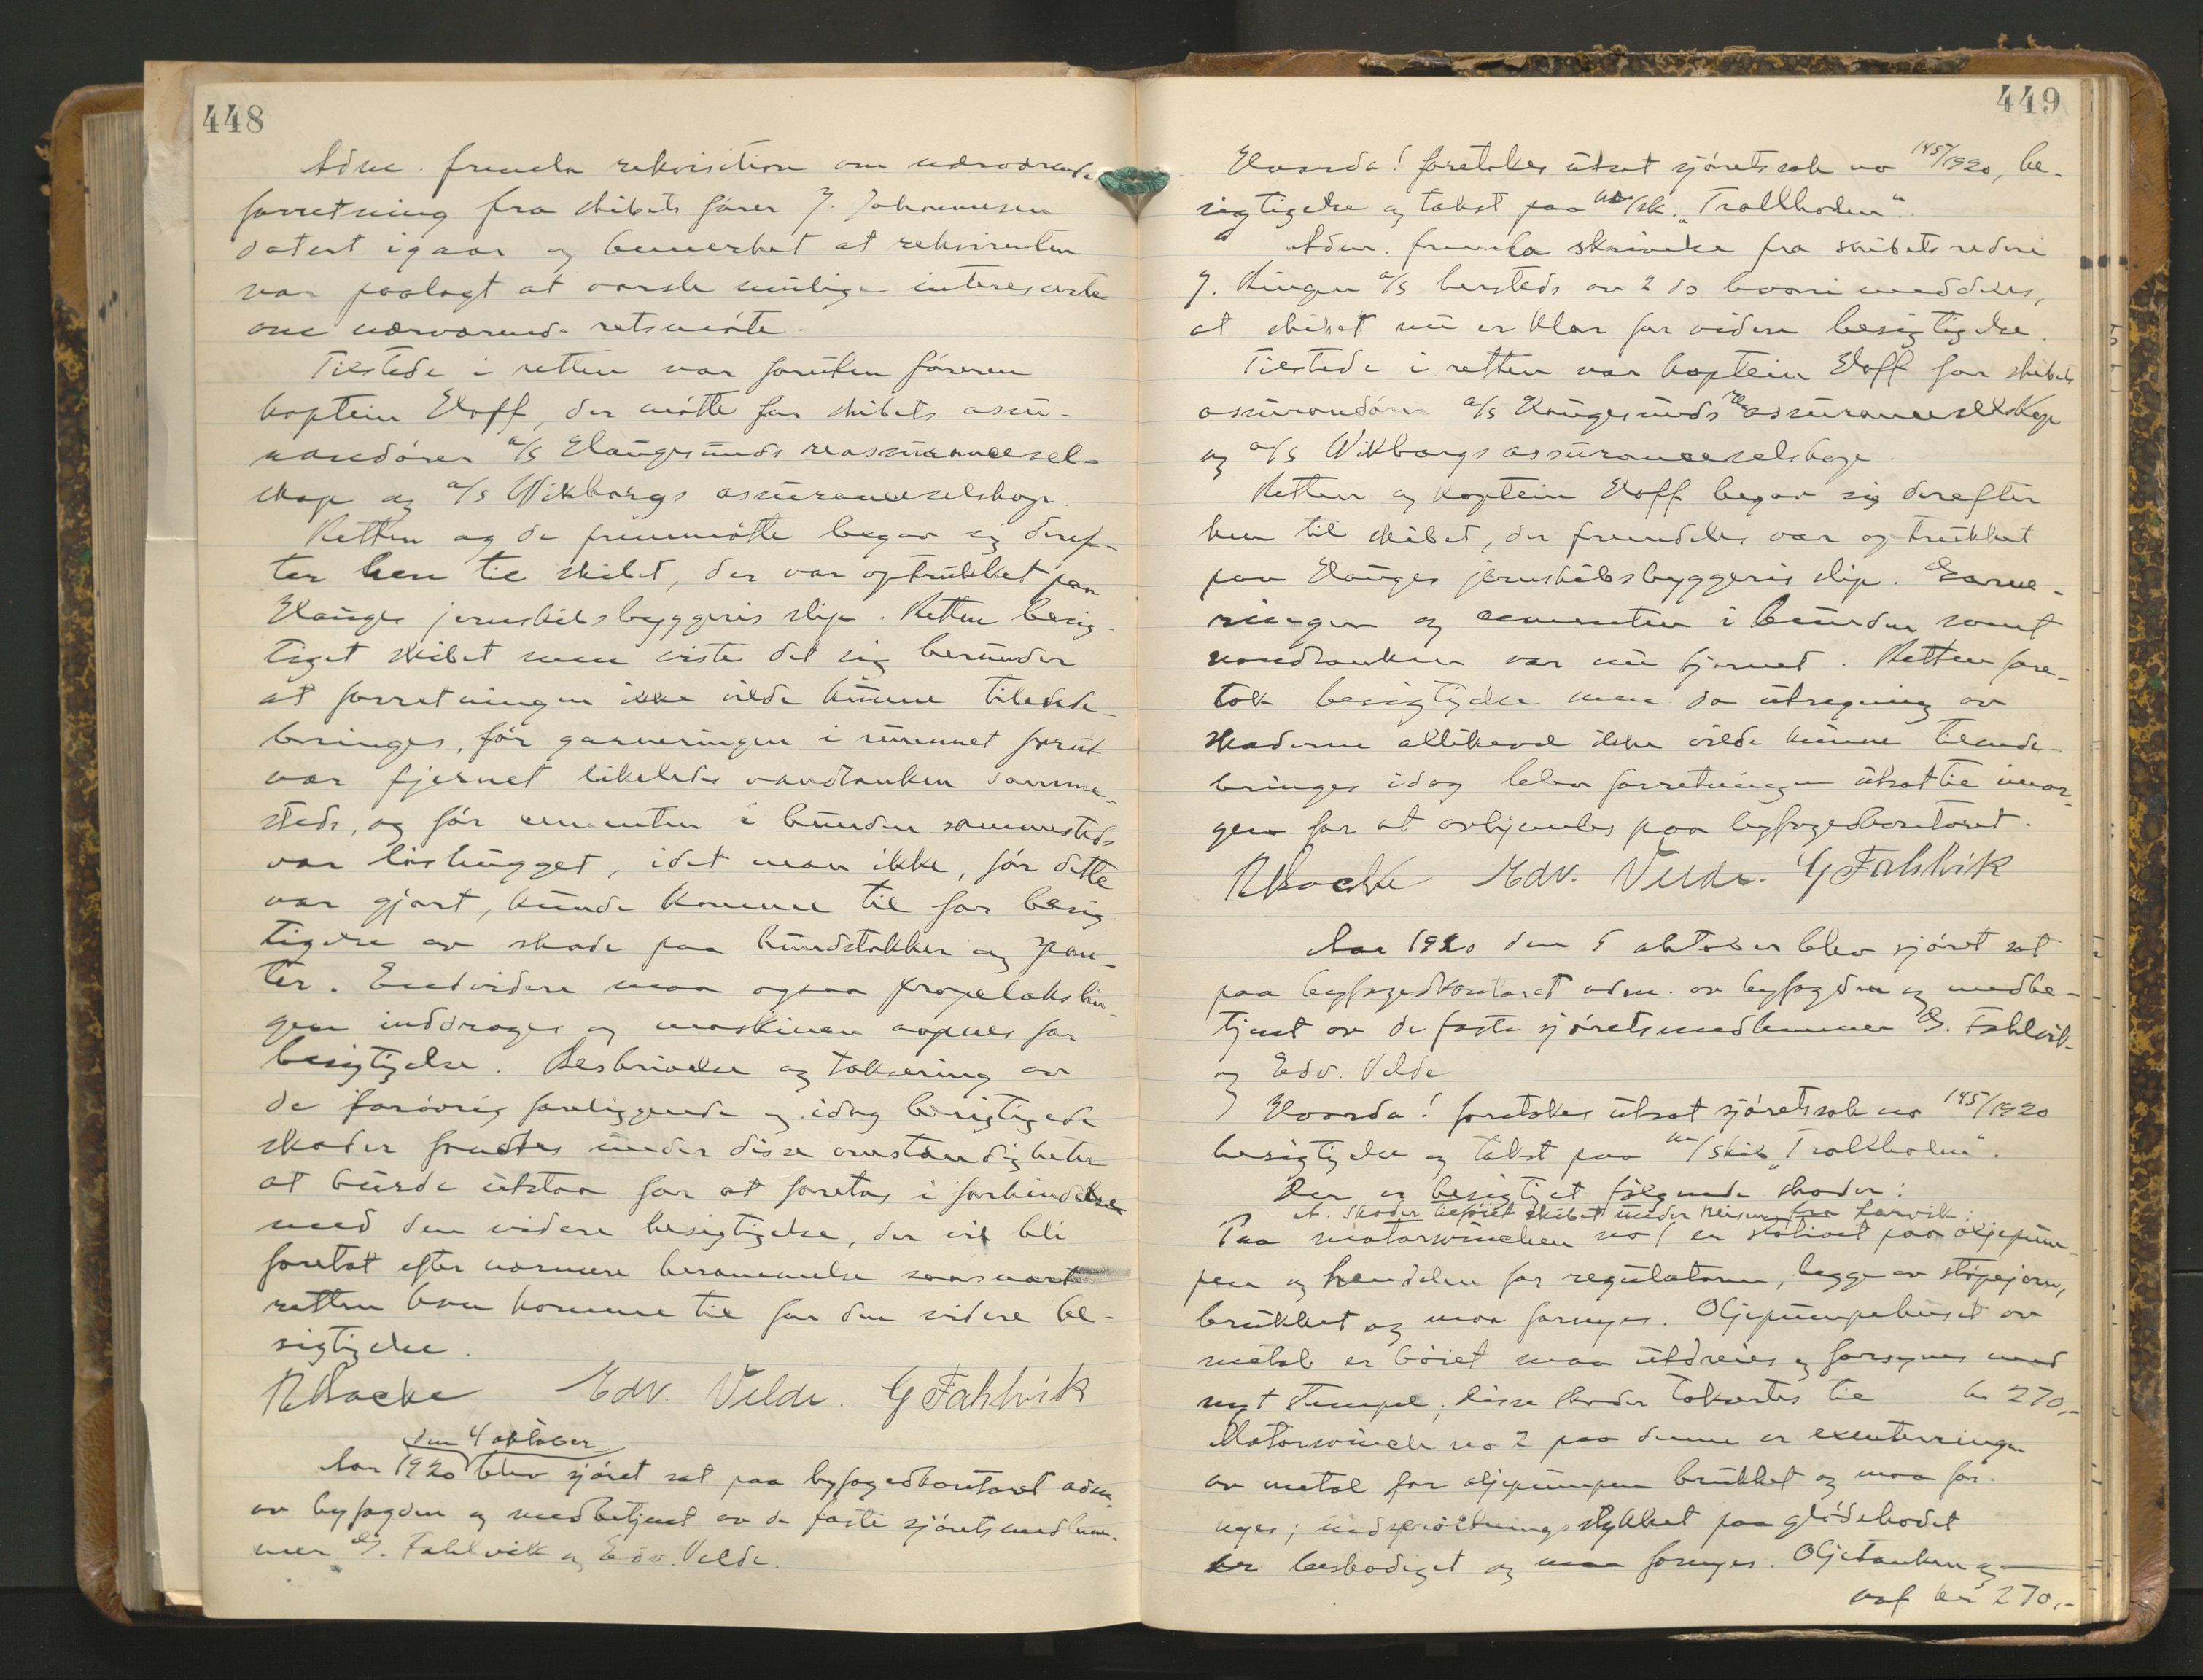 448
Adm. fremla rekvisition om nærværende
forretning fra skibets fører J. Johannesen
datert igaar og bemerket at rekvirenten
var paalagt at varsle mulige interesserte
om nærværende retsmøte.
Tilstede i retten var foruten føreren
kaptein Eloff, der møtte for skibets assu-
randører a/s Haugesunds reassuransesel-
skap og a/s Wikborgs assuranceselskap.
Retten og de fremmøtte begav sig deref-
ter hen til skibet, der var optrukket paa
Hauges jernskibsbyggeris slip. Retten besig-
tiget skibet men viste det sig herunder
at forretningen ikke vilde kunne tilende-
bringes, før garneringen i rummet forut
var fjernet likeledes vandtanken samme-
steds, og før cementen i bunden sammesteds
var løshugget, idet man ikke, før dette
var gjort, kunde komme til for besig-
tigelse av skade paa bundstokker og span-
ter. Endvidere maa ogsaa propelakslin-
gen inddrages og maskinen aapnes for
besigtigelse. Beskrivelse og taksering av
de forøvrig foreliggende og idag besigtigede
skader fandtes under disse omstændigheter
at burde utstaa for at foretas i forbindelse
med den videre besigtigelse, der vil bli
foretat efter nærmere berammelse saasnart
retten kan komme til for den videre be-
sigtigelse.
R Backe Edv. Velde. G Fahlvik
den 4 oktober
Aar 1920 blev sjøret sat paa byfogedkontoret adm.
av byfogden og medbetjent av de faste sjøretsmedlem-
mer G. Fahlvik og Edv. Velde.
449
Hvorda! foretokes utsat sjøretssak no 145/1920, be-
sigtigelse og takst paa m/sk. „Trollholm".
Adm. fremla skrivelse fra skibets rederi
J. Ringen a/s hersteds av 2 ds hvori meddeles,
at skibet nu er klar for videre besigtigelse.
Tilstede i retten var kaptein Eloff for skibets
assurandører a/s Haugesunds reassuranceselskap
og a/s Wikborgs assuranceselskap.
Retten og kaptein Eloff begav sig derefter
hen til skibet, der fremdeles var optrukket
paa Hauges jernskibsbyggeris slip. Garne-
ringen og cementen i bunden samt
vandtanken var nu fjernet. Retten fore-
tok besigtigelse men da utregning av
skaderne allikevel ikke vilde kunne tilende-
bringes idag blev forretningen utsat til imor-
gen for at avhjemles paa byfogedkontoret.
R Backe Edv. Velde. G Fahlvik
Aar 1920 den 5 oktober blev sjøret sat
paa byfogedkontoret adm. av byfogden og medbe-
tjent av de faste sjøretsmedlemmer G. Fahlvik
og Edv. Velde
Hvorda! foretokes utsat sjøretssak no 145/1920
besigtigelse og takst paa m/skib „Trollholm".
Der er besigtiget følgende skader:
A. Skader tilføiet skibet under reisen fra Larvik.
Paa motorwinchen no 1 er stativet paa oljepum-
pen og hendelen for regulatoren, begge av støpejern,
brukket og maa fornyes. Oljepumpehuset av
metal er bøiet maa utdreies og forsynes med
nyt stempel; disse skader takertes til kr 270,-
Motorwinch no 2 paa denne er excenterringen
av metal for oljepumpen brukket og maa for-
nyes; indsprøitningsstykket paa glødehodet
er beskadiget og maa fornyes. Oljetanken og
ovf kr 270,-